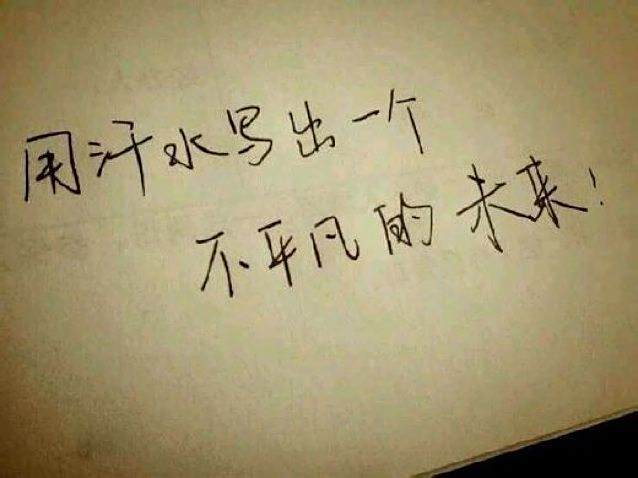 用汗水写出一个
不平凡的未来!